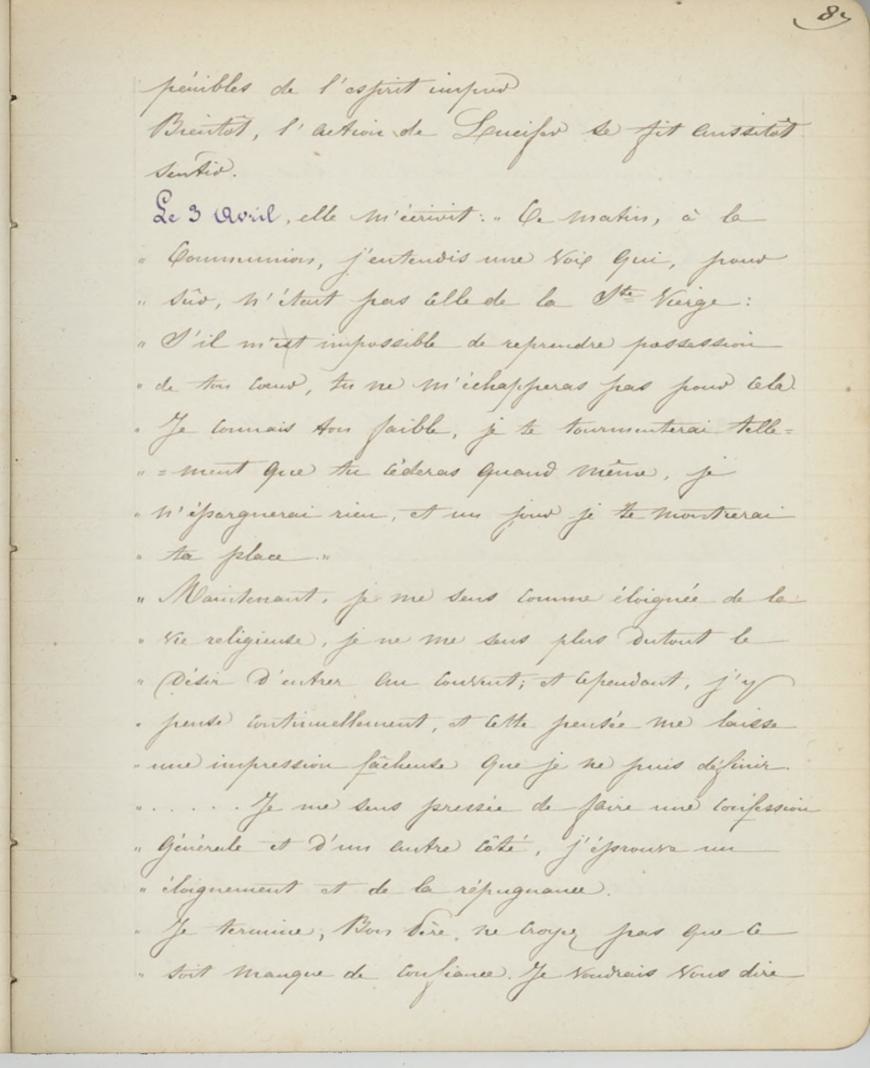 pénibles de l'esprit impur
Bientôt, l'action de Lucifer se fit aussitôt
sentir.
Le 3 Avril, elle m'écrivit : " Ce matin, à la
" Communion, j'entendis une voix qui, pour
" sûr, n'était pas celle de la Ste Vierge :
" S'il m'est impossible de reprendre possession
" de ton cœur, tu ne m'échapperas pas pour cela
" Je connais ton faible, je te tourmenterai telle=
" =ment que tu céderas quand même, je
" n'épargnerai rien, et un jour je te montrerai
" ta place. "
" Maintenant, je me sens comme éloignée de la
" vie religieuse, je ne me sens plus dutout le
" désir d'entrer au couvent ; et cependant, j'y
" pense continuellement, et cette pensée me laisse
" une impression fâcheuse que je ne puis définir.
" . . . . . Je me sens pressée de faire une confession
" générale et d'un autre côté, j'éprouve un
" éloignement et de la répugnance.
" Je termine, Bon Père, ne croyez pas que ce
" soit manque de confiance. Je voudrais vous dire